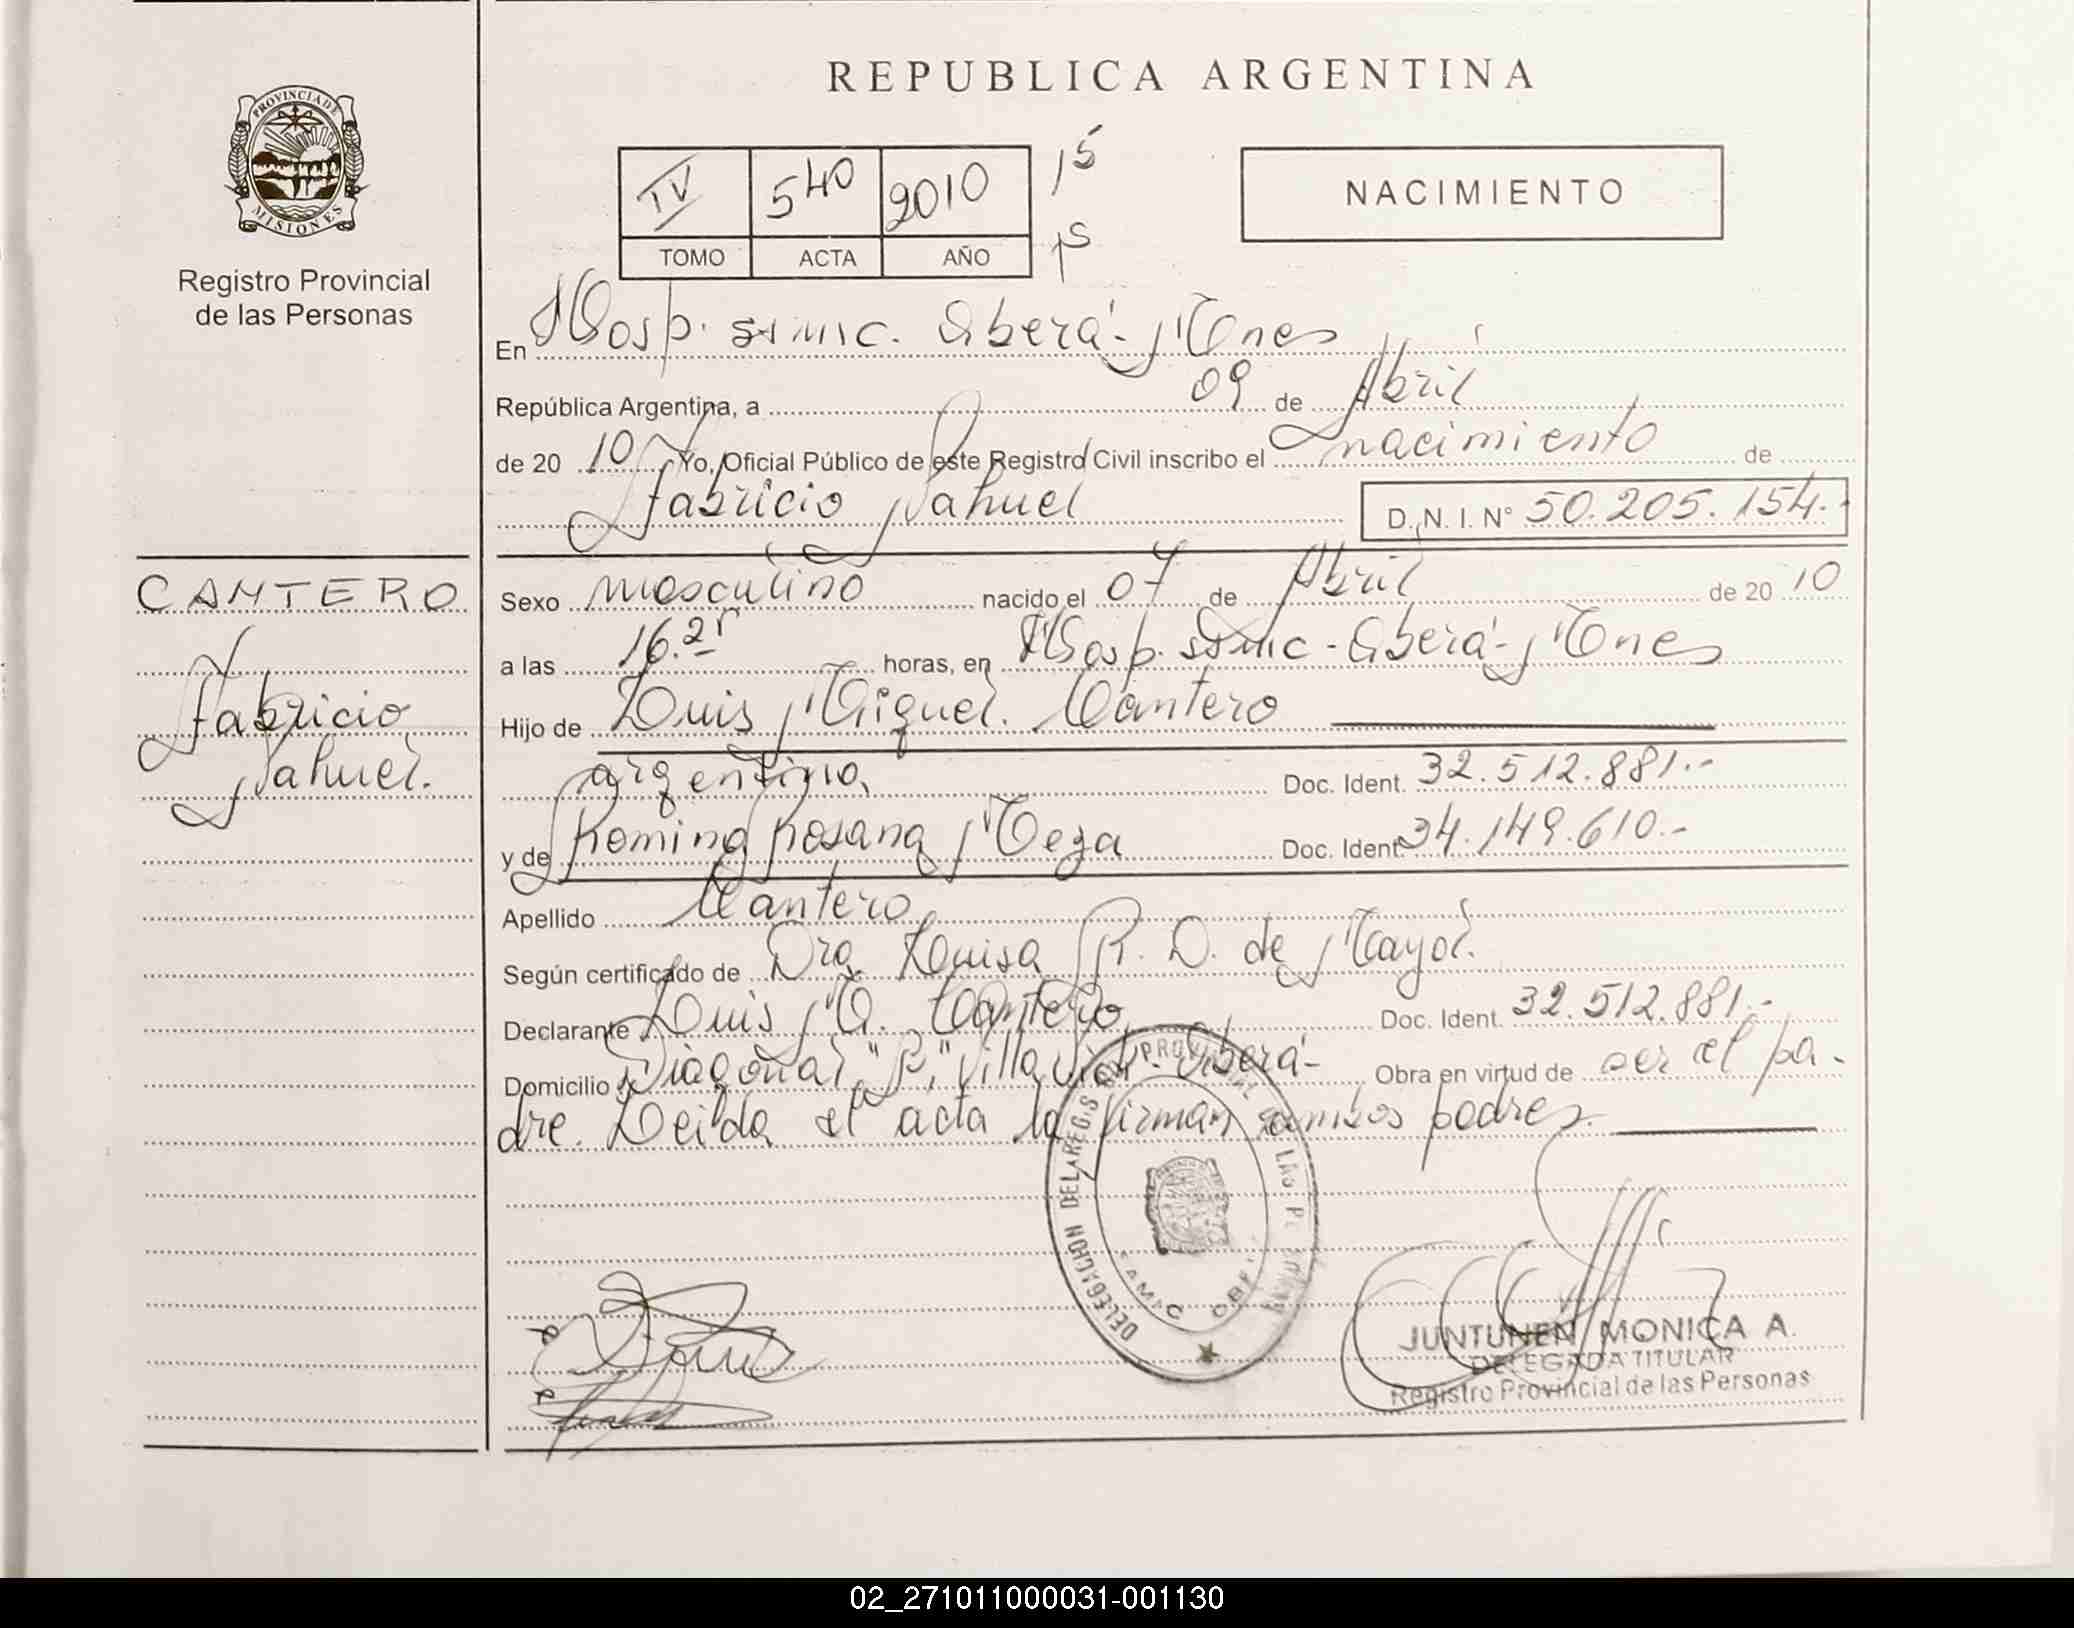 REPUBLICA ARGENTINA
PROVINCIA DE
MISIONES
Registro Provincial
de las Personas
IV 540 2010 15
TOMO ACTA AÑO 15
NACIMIENTO
En Hosp. ssmic. Oberá - Mnes
República Argentina, a 09 de Abril
de 20 10 Yo, Oficial Público de este Registro Civil inscribo el nacimiento de
Fabricio Nahuel D. N. I. N° 50.205.154.-
CANTERO
Fabricio
Nahuel.
Sexo masculino nacido el 07 de Abril de 20 10
a las 16.25 horas, en Hosp. ssmic - Oberá - Mnes
Hijo de Luis Miguel Cantero
argentino, Doc. Ident. 32.512.881.-
y de Romina Rosana Meza Doc. Ident. 34.149.610.-
Apellido Cantero
Según certificado de Dra Luisa R. D. de Mayol.
Declarante Luis M. Cantero Doc. Ident. 32.512.881.-
Domicilio Diagonal "P", Villa Oberá - Obra en virtud de ser el pa-
dre. Leida el acta la firman ambos padres.
DELEGACION DEL REGIS PROVINCIAL LAS
SAMIC OBE
JUNTUNEN MONICA A.
DELEGADA TITULAR
Registro Provincial de las Personas
02_271011000031-001130